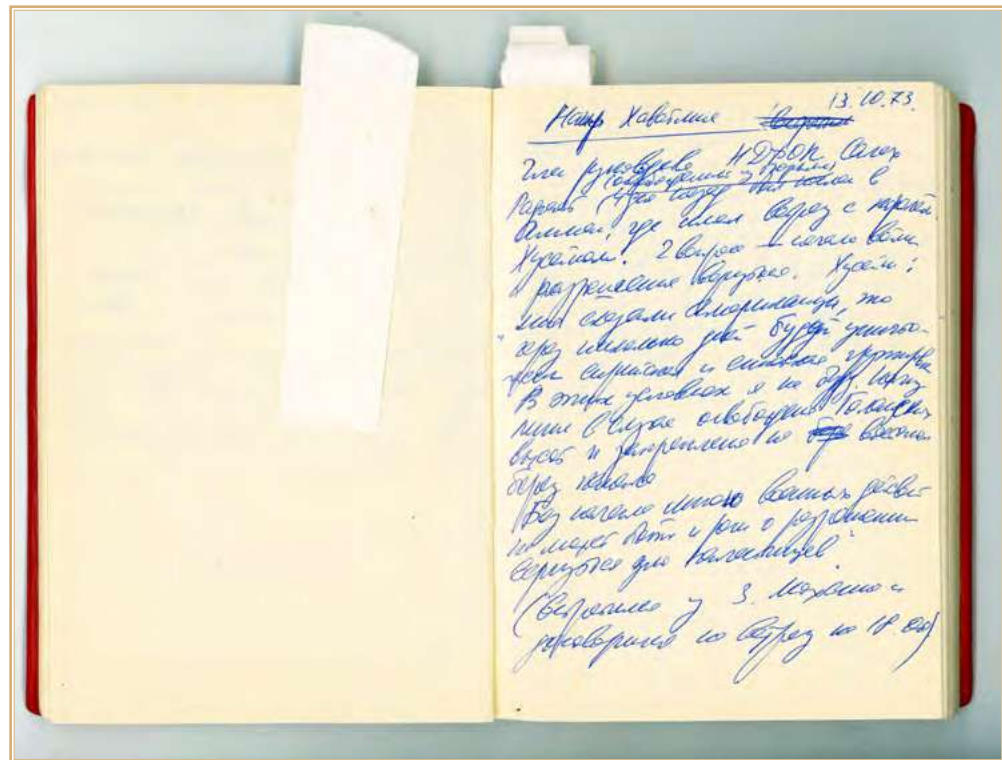 13.10.73.
Наиф Хаватме
Член руководства НДФОП Салех
Рафат (освобожденный из тюрьмы)
4 дня назад был послан в
Амман, где имел встречу с королем
Хусейном. 2 вопроса – начало войны
и разрешение вернуться. Хусейн:
"мне сказали американцы, что
через несколько дней будет уничто-
жена сирийская и египетская группировка
В этих условиях я не буду. Начну
лишь в случае освобождения Голанских
высот и закрепления на восточном
берегу канала
Без начала мною военных действий
не может быть и речи о разрешении
вернуться для палестинцев"
(встретился у З. Мохсена и
договорился на встречу на 18.00)